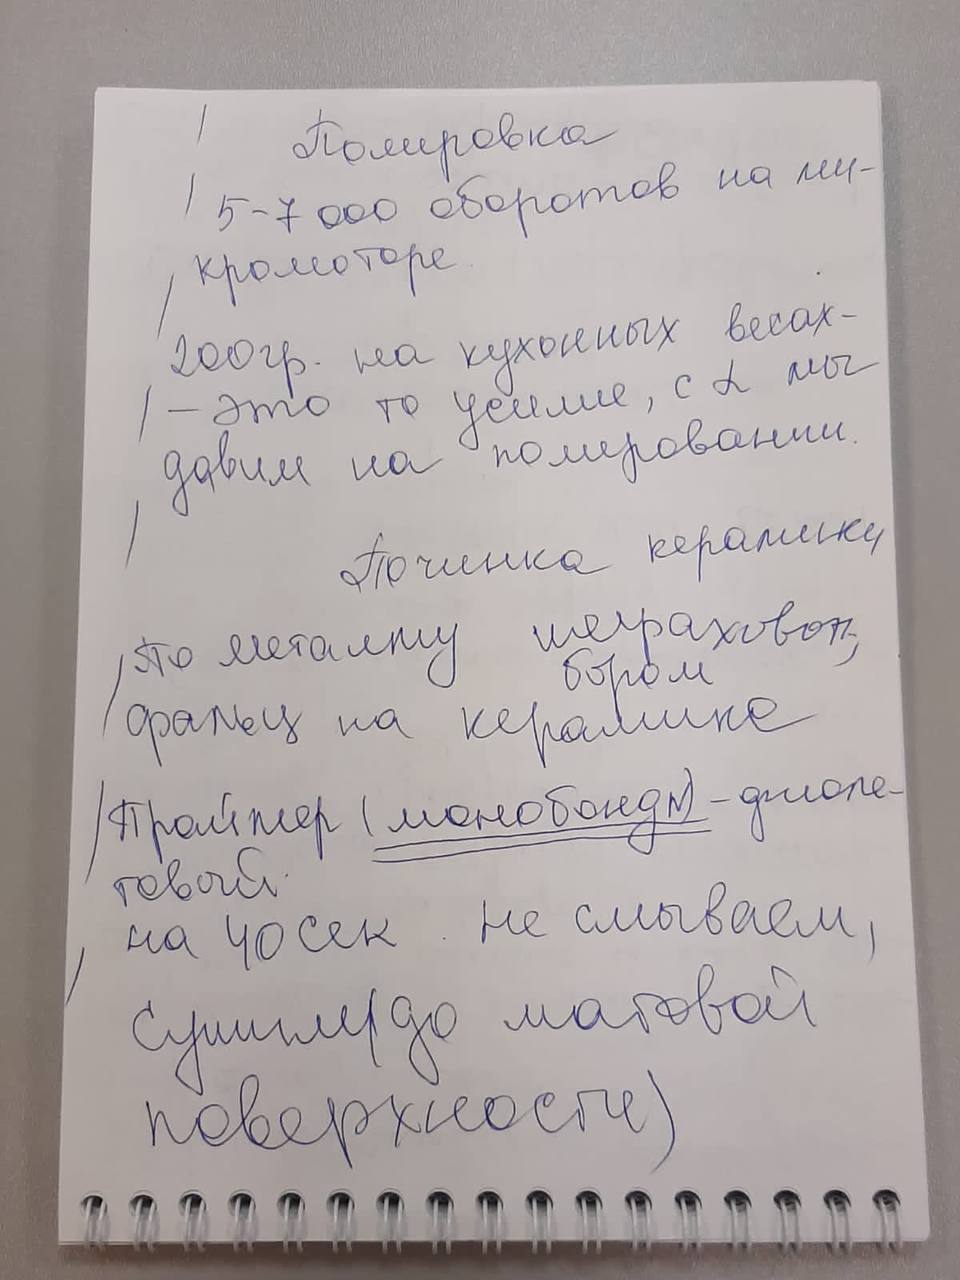 Полировка
5-7000 оборотов на ми-
кромоторе.
200гр. на кухонных весах-
- это то усилие, с α мы
давим на полировании.
Починка керамики
По металлу шероховот,
бором
фальц на керамике
Праймер (монобонд N) -
товый.
на 40 сек. не смываем,
сушим (до матовой
поверхности)